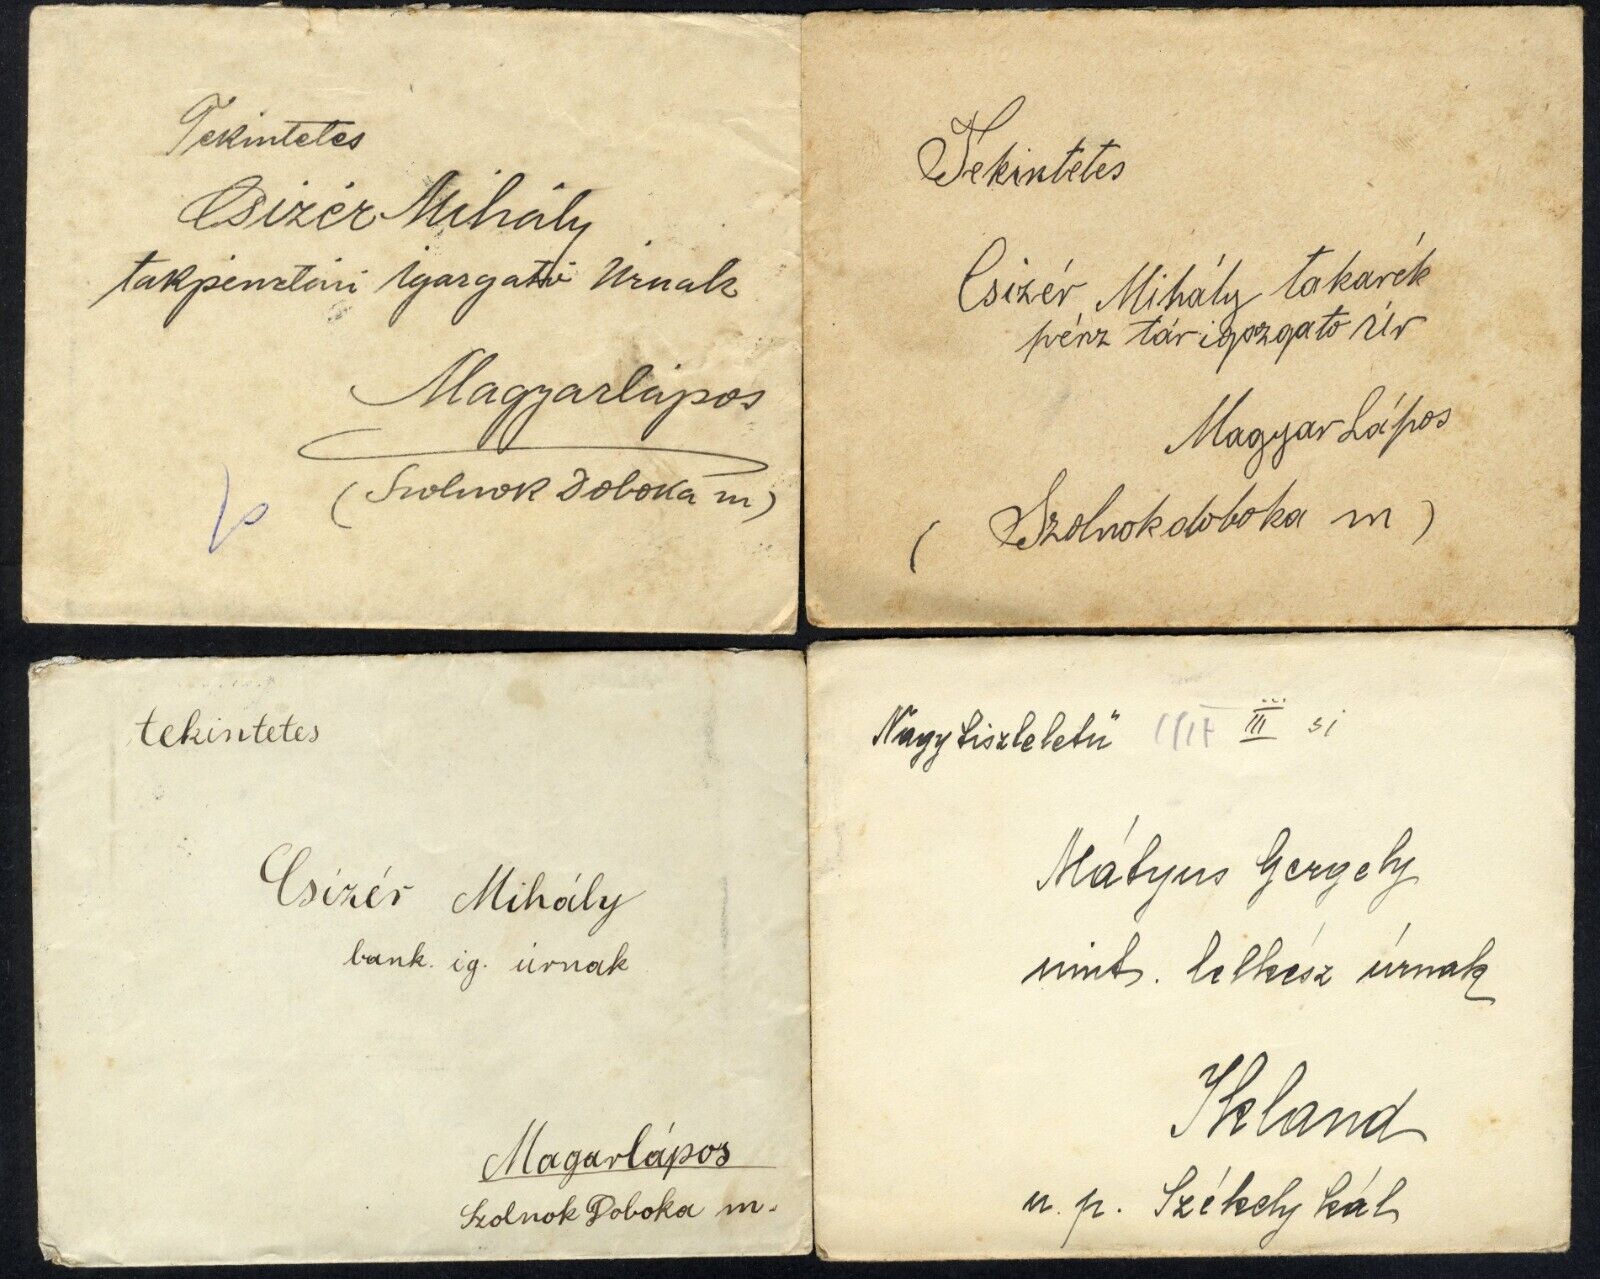 Tekintetes
Csizér Mihály
takpénztári igazgató Úrnak
Magyarlápos
(Szolnok Doboka m)
Tekintetes
Csizér Mihály takarék
pénz tár igazgato Úr
Magyar Lápos
( Szolnokdoboka m )
tekintetes
Csizér Mihály
bank. ig. úrnak
Magarlápos
Szolnok Doboka m.
Nagytiszteletű III si
Mátyus Gergely
unit. lelkész úrnak
Ikland
u. p. Székelykál